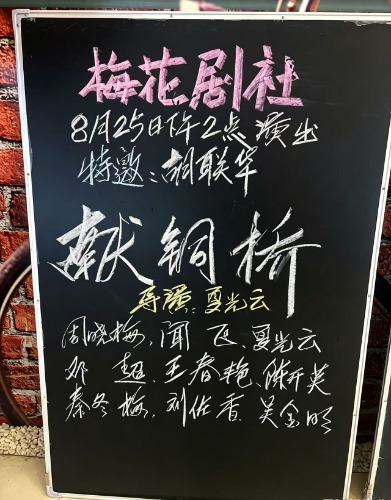 梅花剧社
8月25日下午2点演出
特邀：胡联华
献铜桥
导演：夏光云
周晓梅、闻飞、夏光云
邓超、王春艳、陈开英
秦冬梅、刘佐香、吴金明